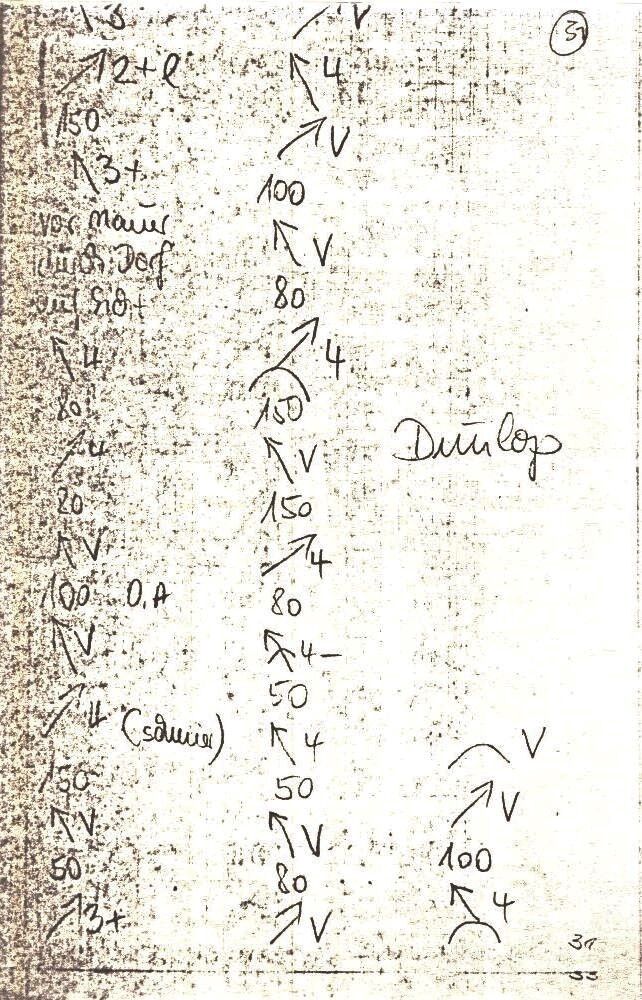 3
2+l
150
3+
vor Mauer
durch Dorf
auf Sicht
4
80
4
V
100 O,A
V
4 (schmier)
150
V
50
3+
V
4
V
100
V
80
4
150
V
150
4
80
4–
50
4
50
V
80
V
31
Dunlop
V
V
100
4
31
33